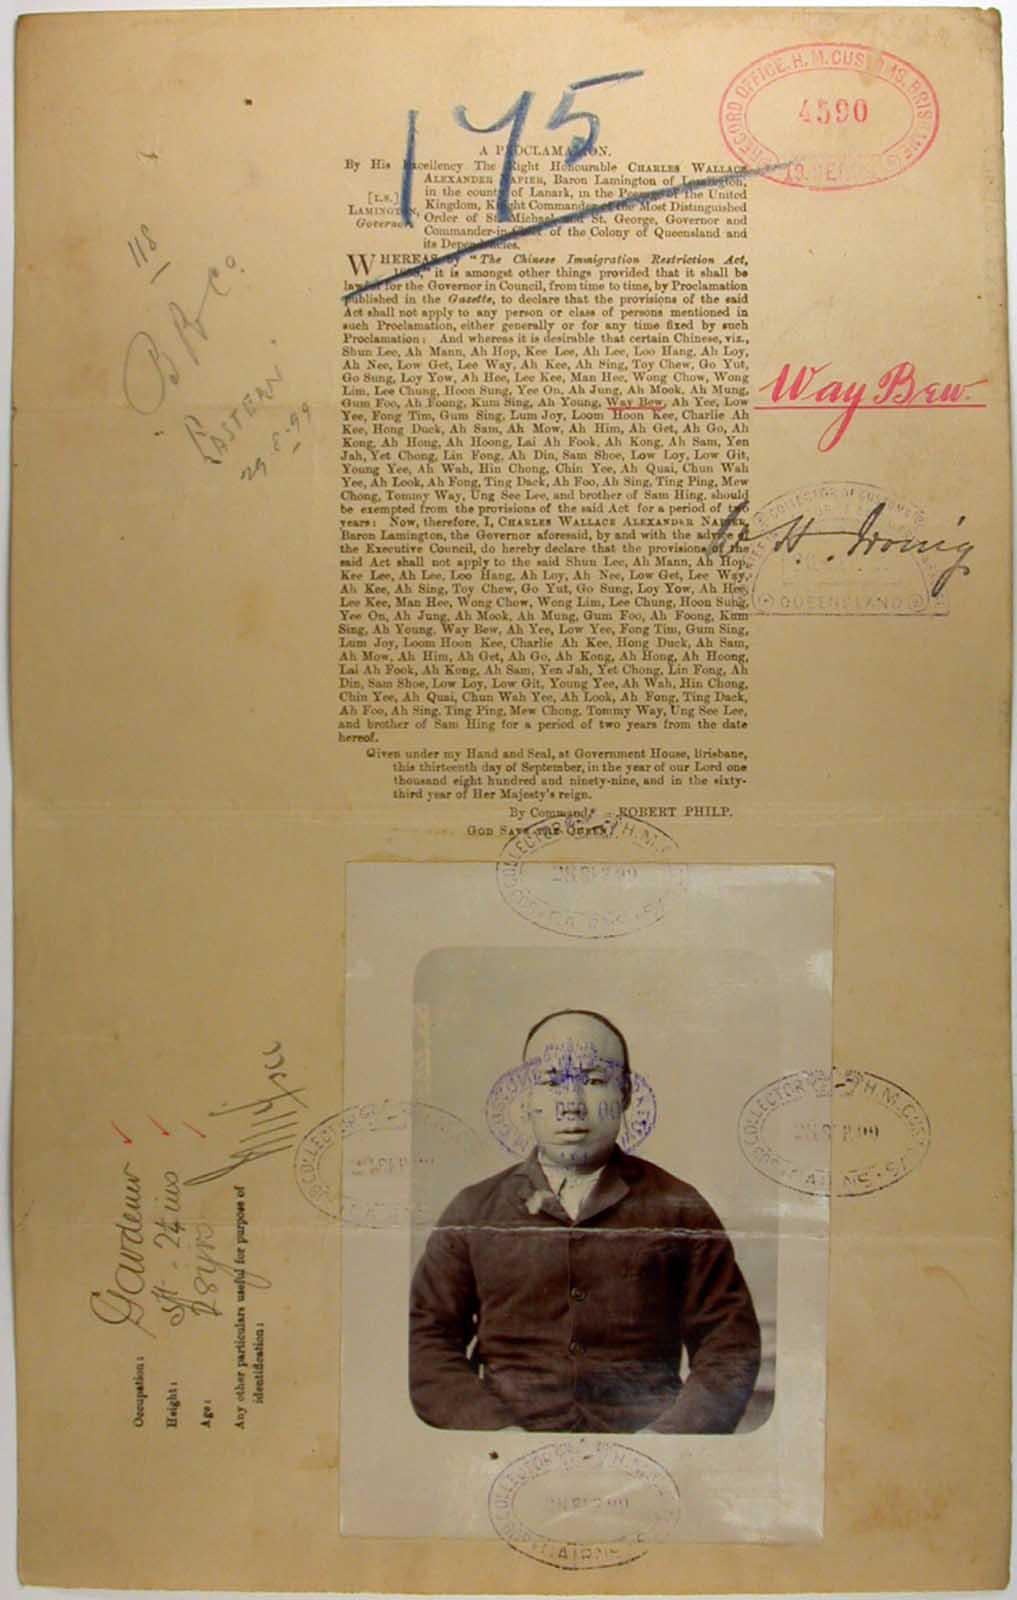 175
RECORD OFFICE. H. M. CUSTOMS. BRISBANE
4590
A PROCLAMATION.
By His Excellency The Right Honourable CHARLES WALLACE
ALEXANDER NAPIER, Baron Lamington of Lamington,
in the county of Lanark, in the Peerage of The United
[L.S.]
Kingdom, Knight Commander of the Most Distinguished
LAMINGTON,
Order of St. Michael and St. George, Governor and
Governor.
Commander-in-Chief of the Colony of Queensland and
its Dependencies.
WHEREAS by "The Chinese Immigration Restriction Act,
it is amongst other things provided that it shall be
lawful for the Governor in Council, from time to time, by Proclamation
published in the Gazette, to declare that the provisions of the said
Act shall not apply to any person or class of persons mentioned in
such Proclamation, either generally or for any time fixed by such
Proclamation: And whereas it is desirable that certain Chinese, viz.,
Shun Lee, Ah Mann, Ah Hop, Kee Lee, Ah Lee, Loo Hang, Ah Loy,
Ah Nee, Low Get, Lee Way, Ah Kee, Ah Sing, Toy Chew, Go Yut,
Go Sung, Loy Yow, Ah Hee, Lee Kee, Man Hee, Wong Chow, Wong
Lim, Lee Chung, Hoon Sung, Yee On, Ah Jung, Ah Mook, Ah Mung,
Gum Foo, Ah Foong, Kum Sing, Ah Young, Way Bew, Ah Yee, Low
Yee, Fong Tim, Gum Sing, Lum Joy, Loom Hoon Kee, Charlie Ah
Kee, Hong Duck, Ah Sam, Ah Mow, Ah Him, Ah Get, Ah Go, Ah
Kong, Ah Hong, Ah Hoong, Lai Ah Fook, Ah Kong, Ah Sam, Yen
Jah, Yet Chong, Lin Fong, Ah Din, Sam Shoe, Low Loy, Low Git,
Young Yee, Ah Wah, Hin Chong, Chin Yee, Ah Quai, Chun Wah
Yee, Ah Look, Ah Fong, Ting Dack, Ah Foo, Ah Sing, Ting Ping, Mew
Chong, Tommy Way, Ung See Lee, and brother of Sam Hing, should
be exempted from the provisions of the said Act for a period of two
years: Now, therefore, I, CHARLES WALLACE ALEXANDER NAPIER,
Baron Lamington, the Governor aforesaid, by and with the advice of
the Executive Council, do hereby declare that the provisions of the
said Act shall not apply to the said Shun Lee, Ah Mann, Ah Hop,
Kee Lee, Ah Lee, Loo Hang, Ah Loy, Ah Nee, Low Get, Lee Way,
Ah Kee, Ah Sing, Toy Chew, Go Yut, Go Sung, Loy Yow, Ah Hee,
Lee Kee, Man Hee, Wong Chow, Wong Lim, Lee Chung, Hoon Sung,
Yee On, Ah Jung, Ah Mook, Ah Mung, Gum Foo, Ah Foong, Kum
Sing, Ah Young, Way Bew, Ah Yee, Low Yee, Fong Tim, Gum Sing,
Lum Joy, Loom Hoon Kee, Charlie Ah Kee, Hong Duck, Ah Sam,
Ah Mow, Ah Him, Ah Get, Ah Go, Ah Kong, Ah Hong, Ah Hoong,
Lai Ah Fook, Ah Kong, Ah Sam, Yen Jah, Yet Chong, Lin Fong, Ah
Din, Sam Shoe, Low Loy, Low Git, Young Yee, Ah Wah, Hin Chong,
Chin Yee, Ah Quai, Chun Wah Yee, Ah Look, Ah Fong, Ting Dack,
Ah Foo, Ah Sing, Ting Ping, Mew Chong, Tommy Way, Ung See Lee,
and brother of Sam Hing for a period of two years from the date
hereof.
Given under my Hand and Seal, at Government House, Brisbane,
this thirteenth day of September, in the year of our Lord one
thousand eight hundred and ninety-nine, and in the sixty-
third year of Her Majesty's reign.
By Command, ROBERT PHILP.
GOD SAVE THE QUEEN!
Way Bew.
QUEENSLAND
118
EASTERN
SUB COLLECTOR OF H.M. CUSTOMS
CAIRNS
SUB COLLECTOR OF H.M. CUSTOMS
CAIRNS
SUB COLLECTOR OF H.M. CUSTOMS
CAIRNS
SUB COLLECTOR OF H.M. CUSTOMS
CAIRNS
Occupation: Gardener
Height: 5ft - 2¼ ins
Age: 28 yrs
Any other particulars useful for purpose of
identification: